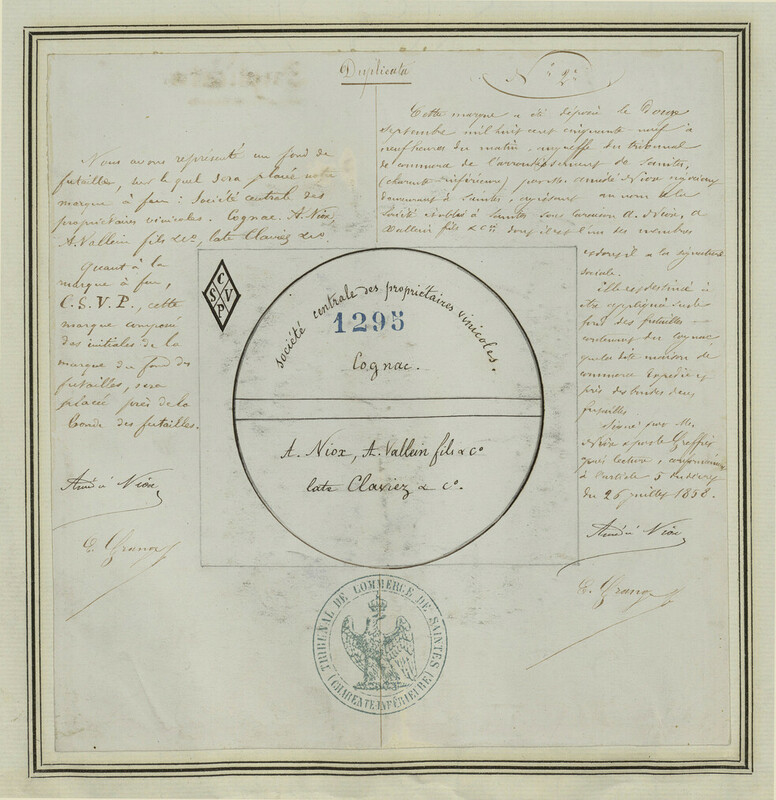 Duplicata
N° 2
Nous avons représenté un fond de
futaille, sur lequel sera placé notre
marque à feu: Société centrale des
propriétaires vinicoles. Cognac. A. Niox,
A. Vallein fils & Cº, late Claviez & Cº.
Quant à la
marque à feu,
C.S.V.P., cette
marque composée
des initiales de la
marque du fond des
futailles, sera
placée près de la
bonde des futailles.
Amédé Niox
E. Grangé
Cette marque a été déposée le Douze
septembre mil huit cent cinquante neuf à
neuf heures du matin, au greffe du tribunal
de commerce de l'arrondissement de Saintes,
(charente inférieure), par Mr. Amédé Niox négociant
demeurant à Saintes, agissant au nom de la
Société établie à Saintes sous la raison A. Niox, A.
Vallein fils & Cie dont il est l'un des membres
et dont il a la signature
sociale.
Elle est destinée à
être appliquée sur le
fond des futailles
contenant du cognac
que la dite maison de
commerce expédiera,
près des bondes des
futailles.
Signé par M.
Niox & par le Greffier
après lecture, conformément
à l'article 5 du décret
du 26 juillet 1858.
Amédé Niox
E. Grangé
C
S V
P
société centrale des propriétaires vinicoles.
1295
Cognac.
A. Niox, A. Vallein fils & Cº
late Claviez & Cº.
TRIBUNAL DE COMMERCE DE SAINTES
(CHARENTE INFÉRIEURE)